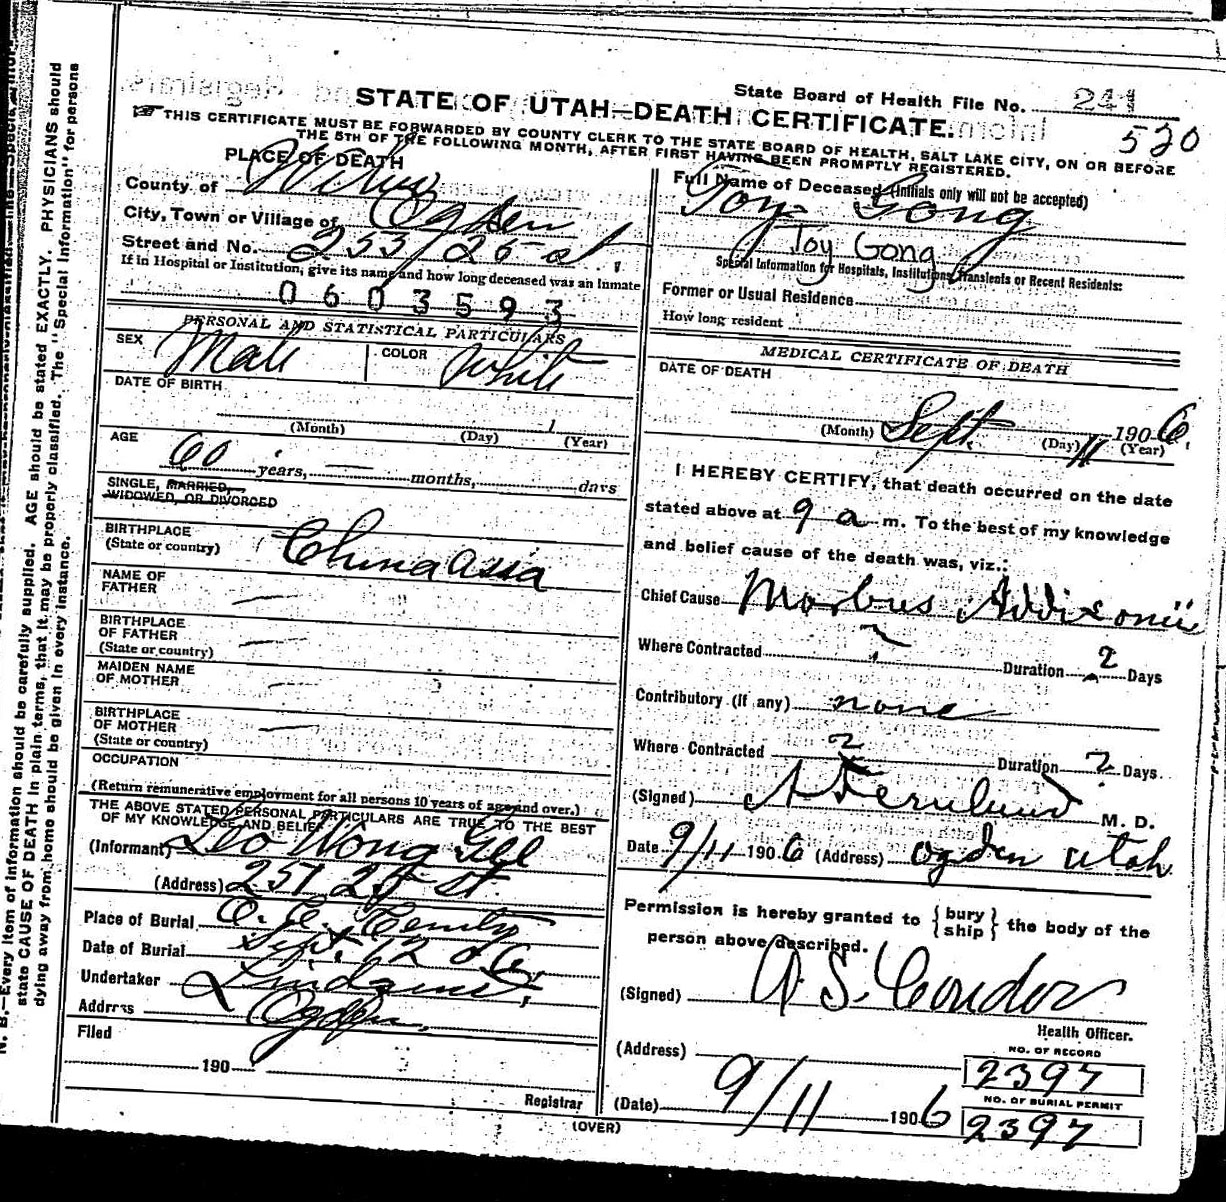 State Board of Health File No. 241
STATE OF UTAH—DEATH CERTIFICATE.
520
THIS CERTIFICATE MUST BE FORWARDED BY COUNTY CLERK TO THE STATE BOARD OF HEALTH, SALT LAKE CITY, ON OR BEFORE
THE 5TH OF THE FOLLOWING MONTH, AFTER FIRST HAVING BEEN PROMPTLY REGISTERED.
PLACE OF DEATH
County of Weber
City, Town or Village of Ogden
Street and No. 253/25 st.
If in Hospital or Institution, give its name and how long deceased was an inmate
0603593
PERSONAL AND STATISTICAL PARTICULARS
SEX Male COLOR White
DATE OF BIRTH
(Month) (Day) 1 (Year)
AGE
60 years, — months, days
SINGLE, MARRIED,
WIDOWED, OR DIVORCED
BIRTHPLACE
(State or country) China Asia
NAME OF
FATHER —
BIRTHPLACE
OF FATHER —
(State or country)
MAIDEN NAME
OF MOTHER —
BIRTHPLACE
OF MOTHER —
(State or country)
OCCUPATION
(Return remunerative employment for all persons 10 years of age and over.)
THE ABOVE STATED PERSONAL PARTICULARS ARE TRUE TO THE BEST
OF MY KNOWLEDGE AND BELIEF
(Informant) Wong Gee
(Address) 257 25 st
Place of Burial O. C.
Date of Burial Sept. 12 06.
Undertaker
Address Ogden.
Filed
190
Registrar
Full Name of Deceased (Initials only will not be accepted)
Toy Gong
Toy Gong
Special Information for Hospitals, Institutions, Transients or Recent Residents:
Former or Usual Residence
How long resident
MEDICAL CERTIFICATE OF DEATH
DATE OF DEATH
Sept. 11 1906.
(Month) (Day) (Year)
I HEREBY CERTIFY, that death occurred on the date
stated above at 9 a m. To the best of my knowledge
and belief cause of the death was, viz.:
Chief Cause Morbus Addisonii
Where Contracted ? Duration 2 Days
Contributory (If any) none
Where Contracted ? Duration 2 Days
(Signed) A Fernlund M. D.
Date 9/11 1906 (Address) Ogden Utah
Permission is hereby granted to {bury
ship} the body of the
person above described.
(Signed) A S. Condon
Health Officer.
(Address)
NO. OF RECORD
2397
NO. OF BURIAL PERMIT
(Date) 9/11 1906 2397
(OVER)
N. B.—Every item of information should be carefully supplied. AGE should be stated EXACTLY. PHYSICIANS should
state CAUSE OF DEATH in plain terms, that it may be properly classified. The "Special Information" for persons
dying away from home should be given in every instance.